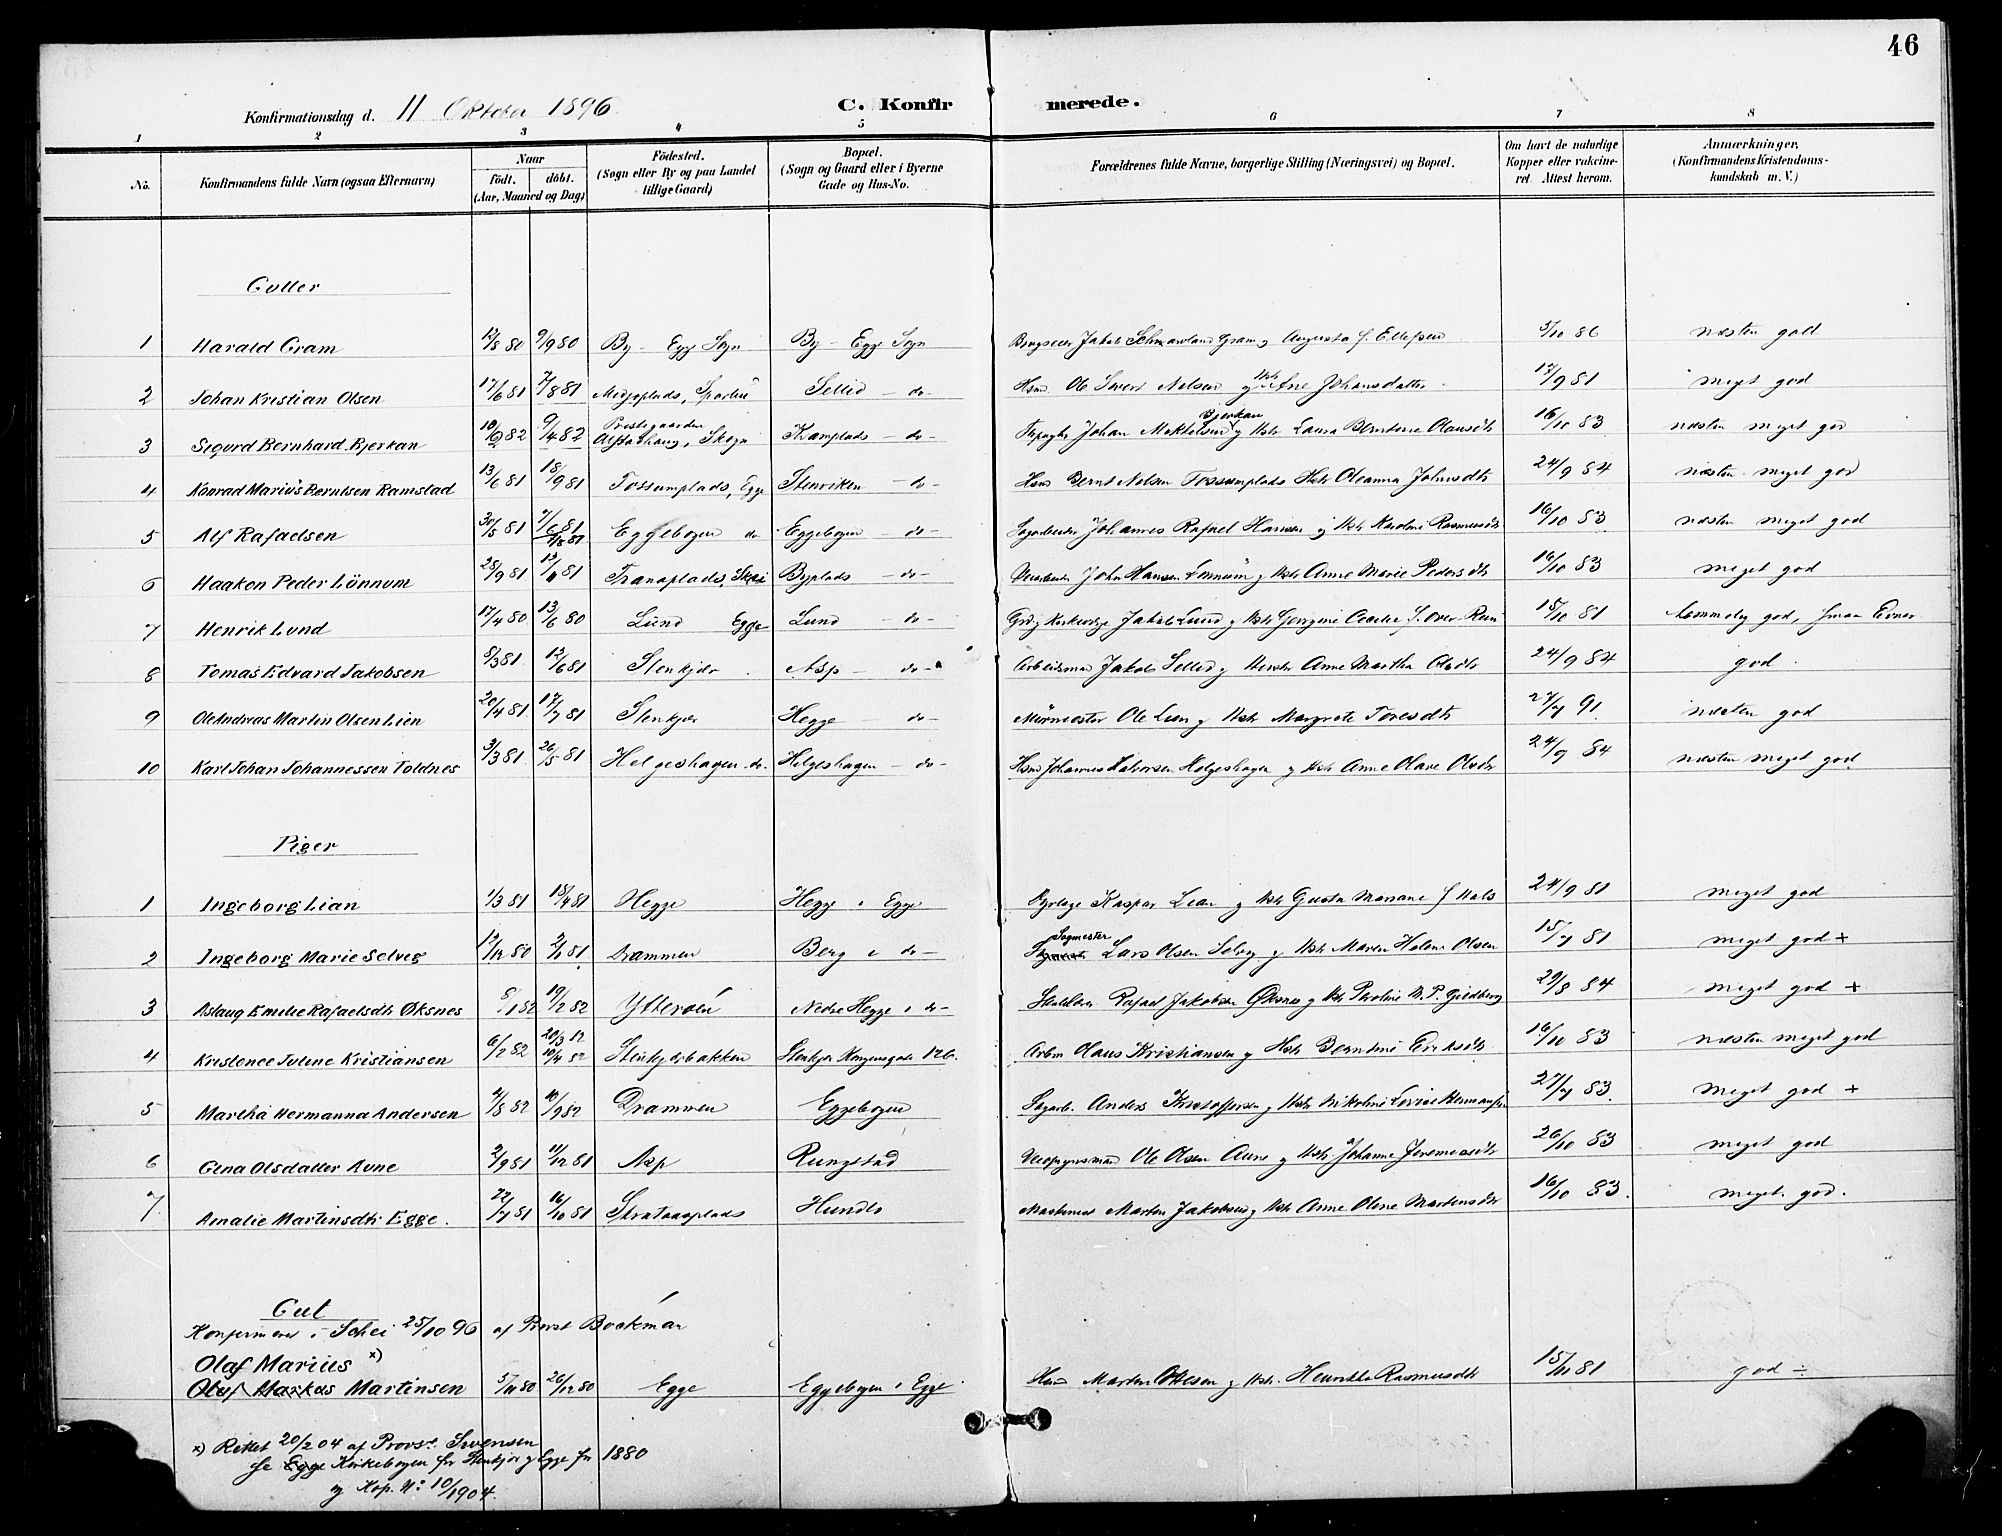 46
Konfirmationsdag d. 11 Oktober 1896.
C. Konfirmerede.
1 2 3 4 5 6 7 8
No.
Konfirmandens fulde Navn (ogsaa Efternavn)
Naar
födt. döbt.
(Aar, Maaned og Dag)
Födested.
(Sogn eller By og paa Landet
tillige Gaard)
Bopæl.
(Sogn og Gaard eller i Byerne
Gade og Hus-No.
Forældrenes fulde Navne, borgerlige Stilling (Næringsvei) og Bopæl.
Om havt de naturlige
Kopper eller vakcine-
ret. Attest herom.
Anmærkninger,
(Konfirmandens Kristendoms-
kundskab m. V.)
Gutter
1 Harald Gram 12/8 80 9/9 80 By - Egge Sogn By - Egge Sogn Jakob Gram og Augusta f. Ellefsen 5/10 86 næsten god
2 Johan Kristian Olsen 17/6 81 7/8 81 Sellid - do - Hsmd Ole Nelsen og Hstr Ane Johansdatter 17/9 81 meget god
3 Sigurd Bernhard Bjerkan 10/9 82 9/4 82 Prestegaarden Alstahaug, Skogn - do - Johan Bjerkan og Hstr Laura Berntine Olausdtr 16/10 83 næsten meget god
4 Konrad Marius Berntsen Ramstad 13/6 81 18/9 81 Fossumplads, Egge Stenviken - do - Hsmd Bernt Nelsen Fossumplads Hstr Oleanna Johnsdtr 24/9 84 næsten meget god
5 Alf Rafaelsen 30/5 81 7/6 81 Eggebogen do Eggebogen - do - Sagarbeider Johannes Rafael Hansen og Hstr Karoline Rasmusdtr 16/10 83 næsten meget god
6 Haakon Peder Lönnum 28/9 81 Tranaplads, Byplads - do - John Hansen Lönnum og Hstr Anne Marie Pedersdtr 16/10 83 meget god
7 Henrik Lund 17/4 80 13/6 80 Lund Egge Lund - do - Jakob Lund og Hstr Georgine Cecilie 15/10 81 temmelig god, smaa Evner
8 Tomas Edvard Jakobsen 8/3 81 12/6 81 Stenkjær Asp - do - Arbeidsmd Jakob Sellid og Hstr Anne Martha Olsdtr 24/9 84 god
9 Ole Andreas Martin Olsen Lien 20/4 81 17/7 81 Stenkjær Hegge - do - Murmester Ole Lien og Hstr Margrete Toresdtr 27/7 91 næsten god
10 Karl Johan Johannessen Toldnes 3/3 81 26/5 81 Helgeshagen do. Helgeshagen - do - Hsmd Johannes Halvorsen Helgeshagen og Hstr Anne Olave Olsdtr 24/9 84 næsten meget god
Piger
1 Ingeborg Lian 1/3 81 18/4 81 Hegge Hegge i Egge Kaspar Lian og Hstr Gusta Mariane f Hals 24/9 81 meget god
2 Ingeborg Marie Selveg 12/12 80 2/1 81 Drammen Berg i do - Sagmester Lars Olsen Selveg og Hstr Maren Helene Olsen 15/7 81 meget god +
3 Aslaug Emilie Rafaelsdtr Øksnes 5/1 82 19/2 82 Ytterøen Nedre Hegge i do - Rafael Jakobsen Øksnes og Hstr 29/8 84 meget god +
4 Kristence Juline Kristiansen 6/2 82 20/3 82 10/4 82 Stenkjærbakken Stenkjær Kongensgade 126. Arbm Olaus Kristiansen og Hstr Berntine Eriksdtr 16/10 83 næsten meget god
5 Martha Hermanna Andersen 4/8 82 10/9 82 Drammen Eggebogen Sagarb. Anders Kristoffersen og Hstr Nikoline Lovise Hermansen 27/7 83 meget god +
6 Gina Olsdatter Avne 2/9 81 11/12 81 Asp Rungstad Ole Olsen Aune og Hstr. Johanne Jeremiasdtr 26/10 83 meget god
7. Amalie Martinsdtr Egge. 22/7 81 16/10 81 Hundlo Martin Jakobsen og Hstr Anne Oline Martensdtr 16/10 83. meget god.
Gut
Konfirmeret i Schei 25/10 96 af Provst Bockman
Olaf Marius x)
Olaf Markus Martinsen 5/11 80 26/12 80 Egge Eggebogen i Egge Hsmd Morten Ottesen og Hstr. Henrikke Rasmusdtr 15/11 81 god ÷
x) Rettet 20/2 04 af Provst Svensen
se Egge Kirkebogen for Stenkjær og Egge for 1880
og Kop. No 10/1904.